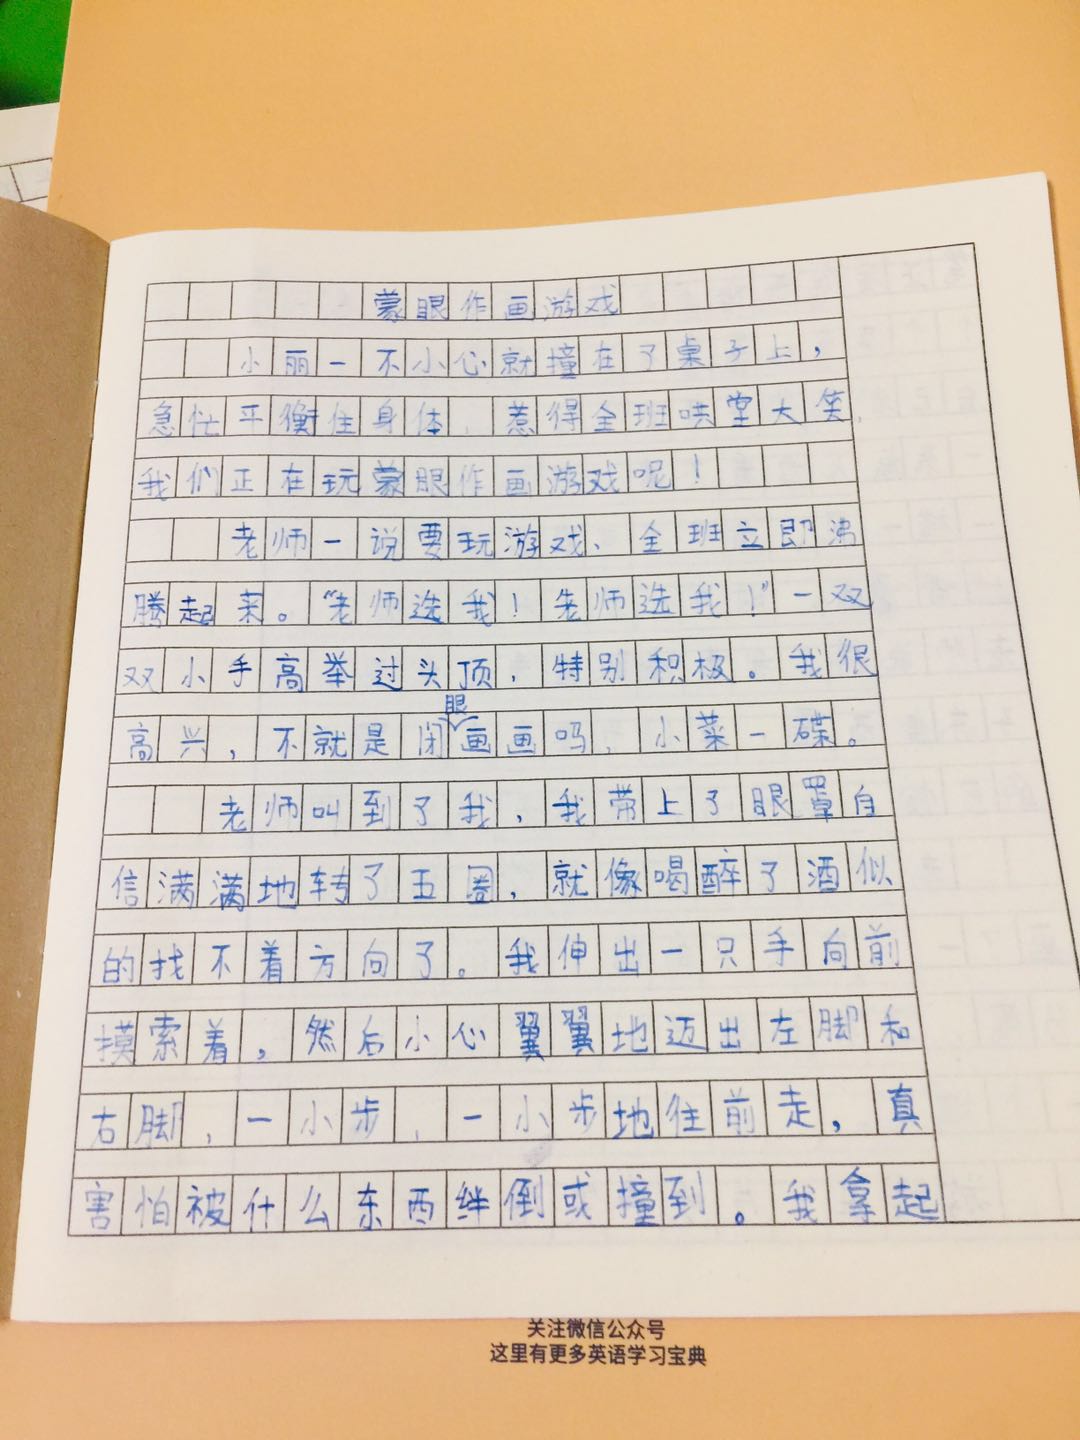 蒙眼作画游戏
小丽一不小心就撞在了桌子上，
急忙平衡住身体，惹得全班哄堂大笑，
我们正在玩蒙眼作画游戏呢！
老师一说要玩游戏、全班立即沸
腾起来。“老师选我！老师选我！”一双
双小手高举过头顶，特别积极。我很
高兴，不就是闭眼画画吗，小菜一碟。
老师叫到了我，我带上了眼罩自
信满满地转了五圈，就像喝醉了酒似
的找不着方向了。我伸出一只手向前
摸索着，然后小心翼翼地迈出左脚和
右脚，一小步，一小步地往前走，真
害怕被什么东西绊倒或撞到。我拿起
关注微信公众号
这里有更多英语学习宝典